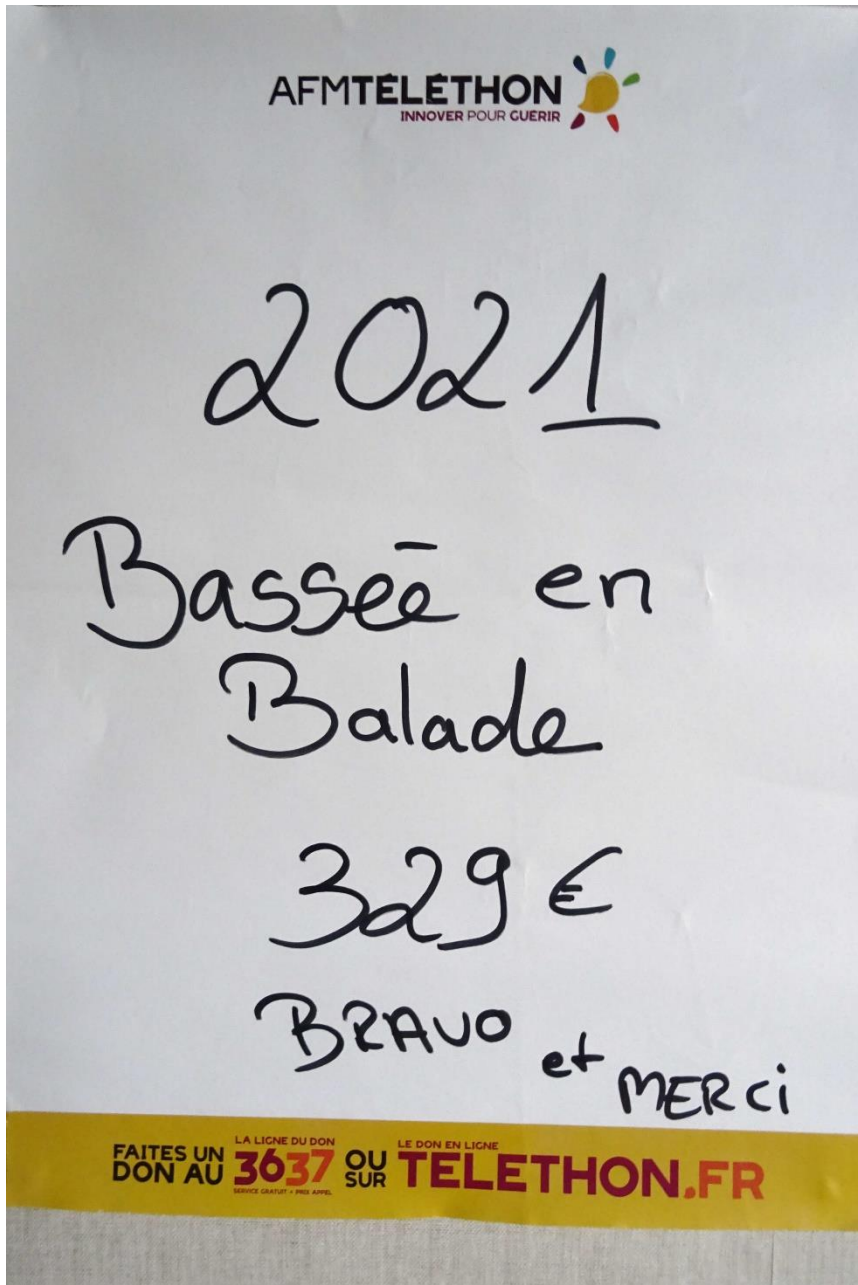 AFMTÉLÉTHON
INNOVER POUR GUÉRIR
2021
Bassée en
Balade
329 €
BRAVO et MERCi
FAITES UN DON AU
LA LIGNE DU DON
3637
SERVICE GRATUIT + PRIX APPEL
OU SUR
LE DON EN LIGNE
TELETHON.FR